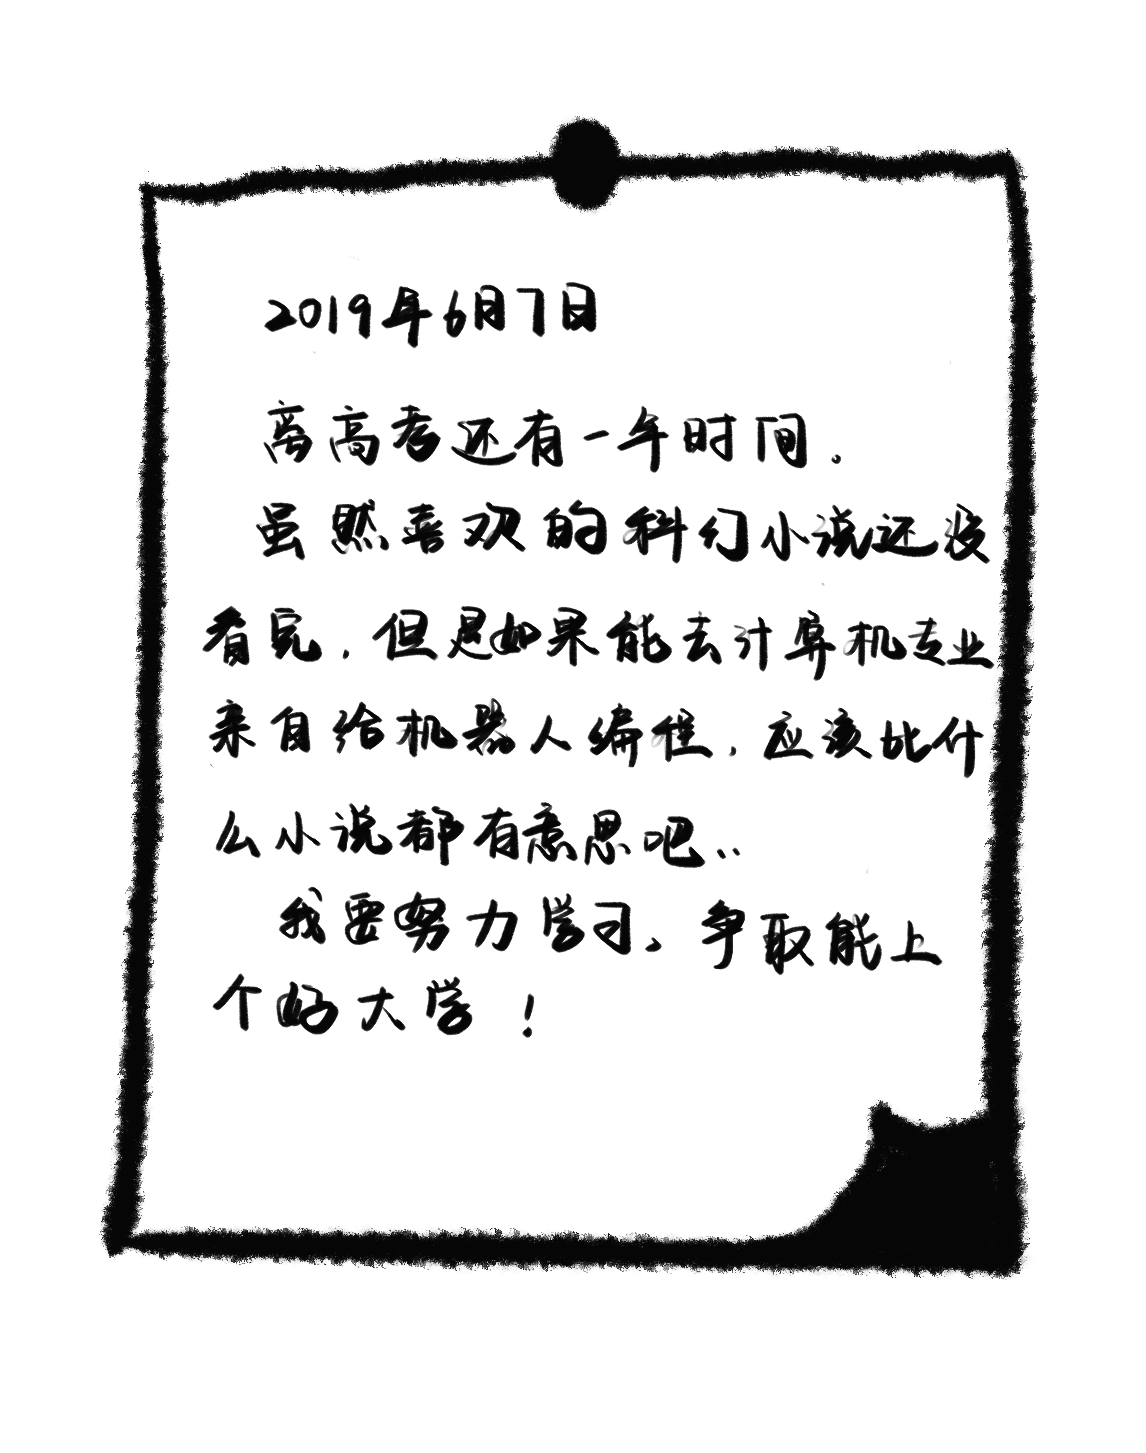 2019年6月7日
离高考还有一年时间.
虽然喜欢的科幻小说还没
看完,但是如果能去计算机专业
亲自给机器人编程,应该比什
么小说都有意思吧..
我要努力学习,争取能上
个好大学!